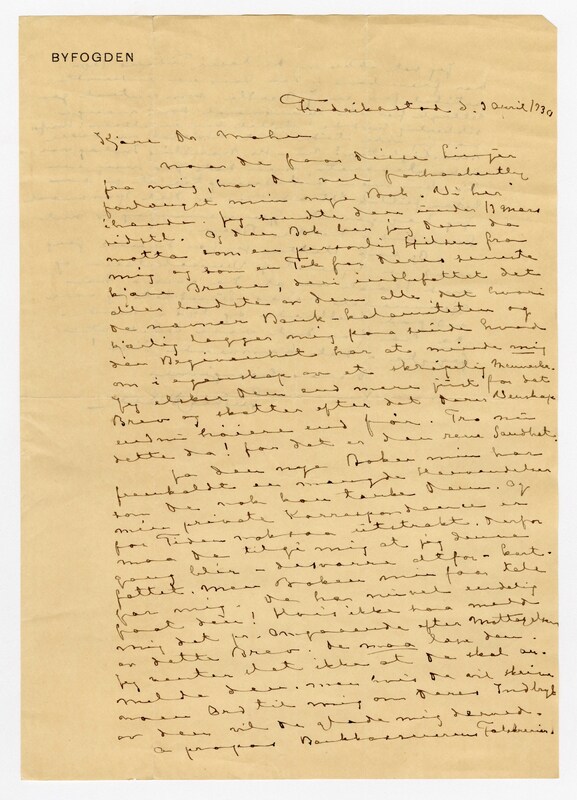 BYFOGDEN
Fredrikstad d. 9 April/930
Kjære Dr Mohr
Naar De faar disse Linjer
fra mig, har De vel forhaabentlig
forlængst min nye Bok. Vi her
ihænde. Jeg sendte den under 13 mars
sidstl. Og den Bok ber jeg Dem da
motta som en personlig Hilsen fra
mig og som en Tak for Deres seneste
kjære Breve, deri indbefattet det
aller bedste av dem alle, det hvori
De nævner Bank-kalamiteten og
kjærlig lægger mig paa sinde hvad
den Begivenhet har at minde mig
om i egenskap av et skrøpelig Menneske.
Jeg elsker Dem end mere just for det
Brev og skatter efter det Deres Venskap
endnu høiere end før. Tro nu
dette da! for det er den rene Sandhet.
Ja den nye Boken min har
foranledet en mængde Henvendelser
som De nok kan tænke Dem. Og
min private Korrespondance er
for Tiden nokså utstrakt. Derfor
maa De tilgi mig at jeg denne
gang blir - desværre altfor - kort-
fattet. Men Boken min faar tale
for mig. De har nu vel endelig
faat den! Hvis ikke saa meld
mig det pr. omgaaende efter Mottagelsen
av dette Brev. De maa læse den
Jeg venter slet ikke at De skal an-
melde den. Men hvis De vil skrive
noen Ord til mig om Deres Indtryk
av den vil De glæde mig dermed.
A propos